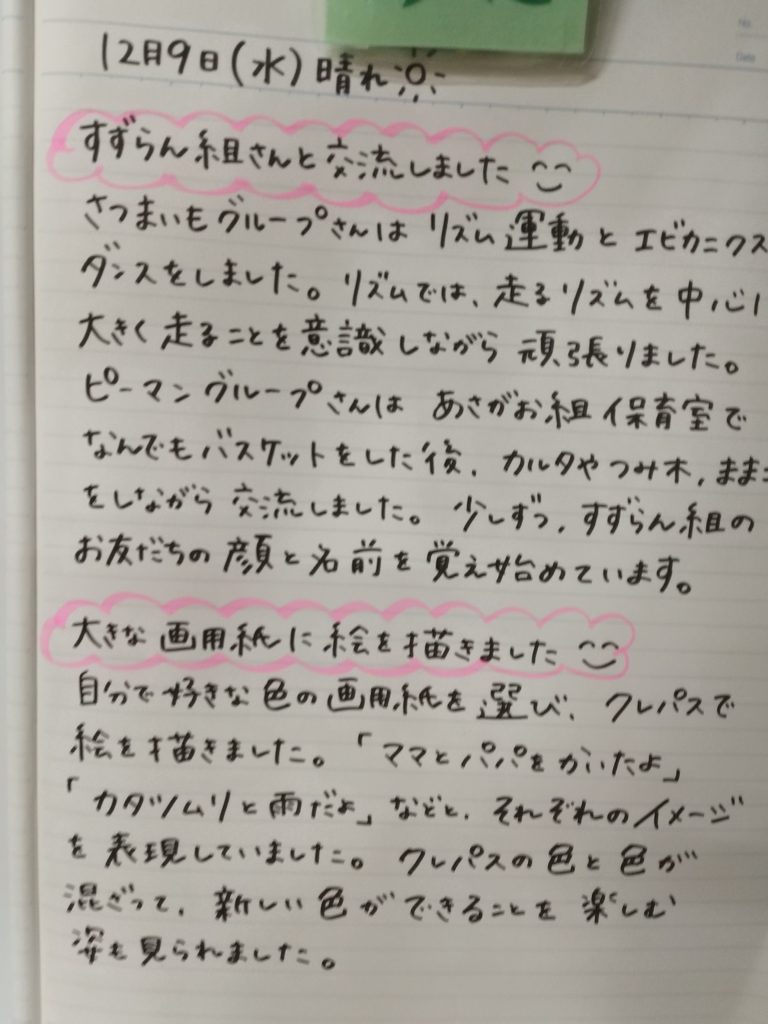 12月9日(水)晴れ
すずらん組さんと交流しました
さつまいもグループさんは リズム運動と エビカニクス
ダンスをしました。リズムでは、走るリズムを中心に
大きく走ることを意識しながら 頑張りました。
ピーマングループさんは あさがお組保育室で
なんでもバスケットをした後、カルタやつみ木、まま
をしながら 交流しました。少しずつ、すずらん組の
お友だちの顔と名前を覚え始めています。
大きな画用紙に絵を描きました
自分で好きな色の画用紙を選び、クレパスで
絵を描きました。「ママとパパをかいたよ」
「カタツムリと雨だよ」などと、それぞれのイメージ
を表現していました。クレパスの色と色が
混ざって、新しい色ができることを楽しむ
姿も見られました。